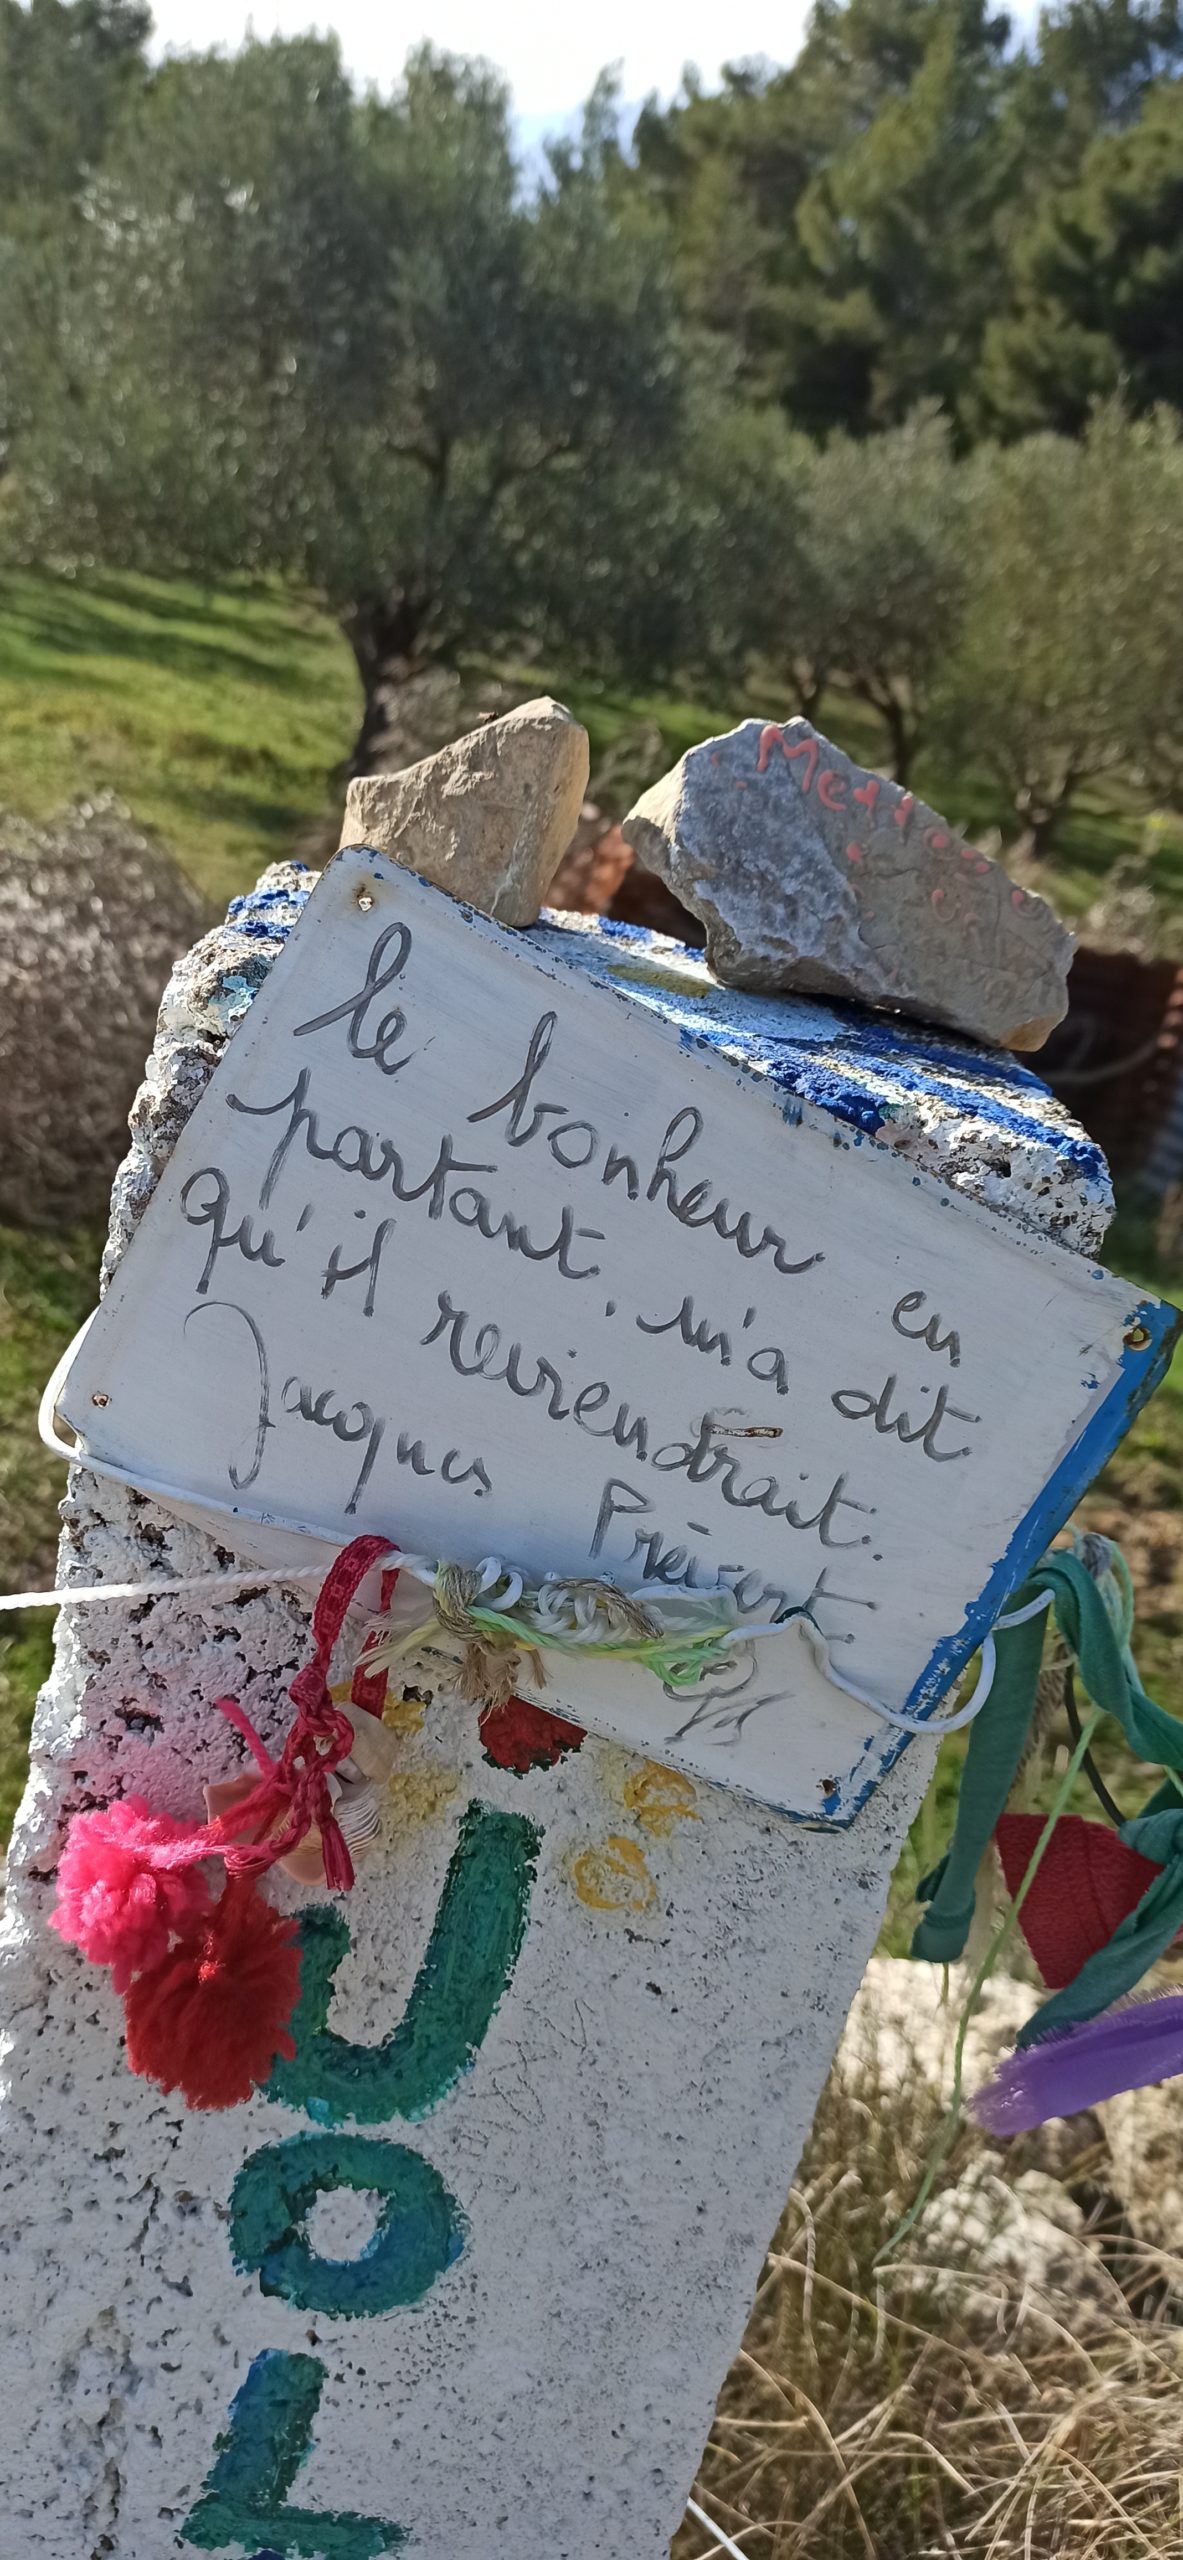 Merci
le bonheur en
partant, m'a dit
qu'il reviendrait.
Jacques Prévert
J
O
I